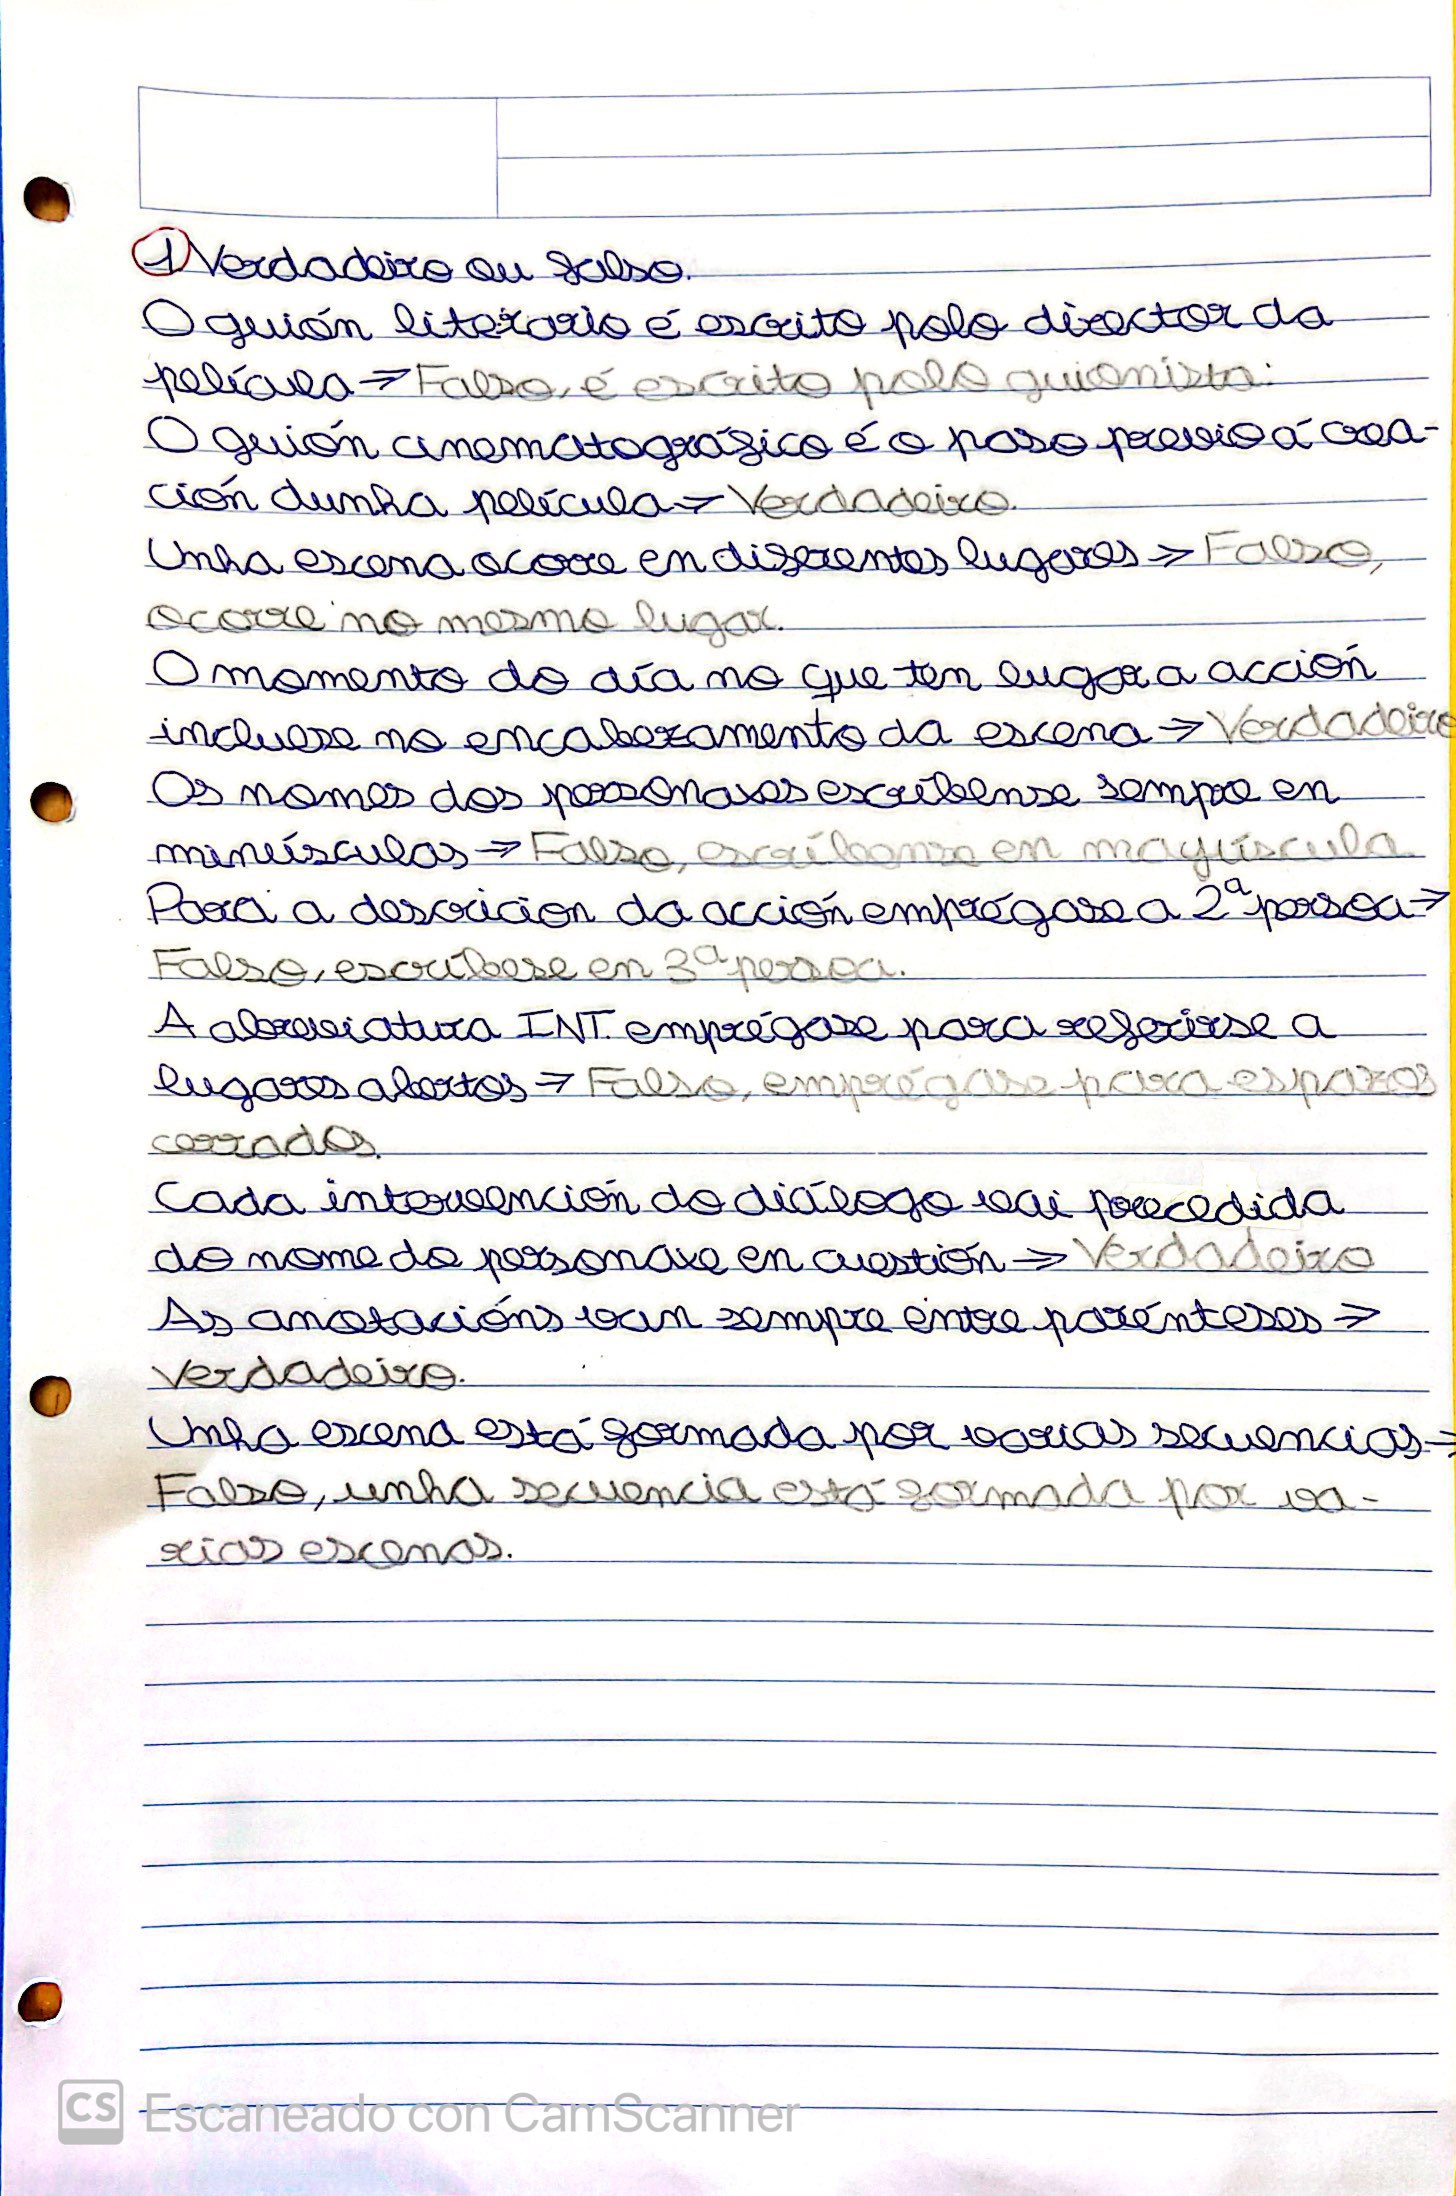 1 Verdadeiro ou falso.
O guión literario é escrito polo director da
película → Falso, é escrito polo guionista.
O guión cinematográfico é o paso previo á crea-
ción dunha película → Verdadeiro.
Unha escena ocorre en diferentes lugares → Falso,
ocorre no mesmo lugar.
O momento do día no que ten lugar a acción
incluese no encabezamento da escena → Verdadeiro
Os nomes dos personaxes escríbense sempre en
minúsculas → Falso, escríbense en mayúscula
Para a descrición da acción emprégase a 2ª persoa →
Falso, escríbese en 3ª persoa.
A abreviatura INT. emprégase para referirse a
lugares abertos → Falso, emprégase para espazos
cerrados.
Cada intervención do diálogo vai precedida
do nome do personaxe en cuestión → Verdadeiro
As anotacións van sempre entre parénteses →
Verdadeiro.
Unha escena está formada por varias secuencias →
Falso, unha secuencia está formada por va-
rias escenas.
CS Escaneado con CamScanner